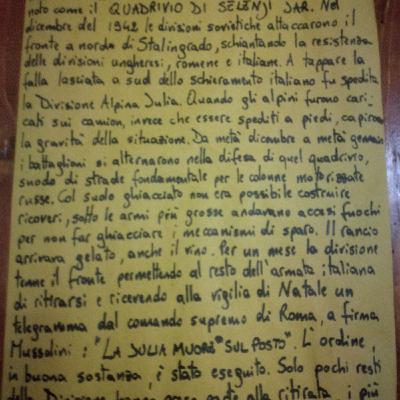 noto come il QUADRIVIO DI SELENJ JAR. Nel
dicembre del 1942 le divisioni sovietiche attaccarono il
fronte a nord di Stalingrado, schiantando la resistenza
delle divisioni ungheresi, romene e italiane. A tappare la
falla lasciata a sud dello schieramento italiano fu spedita
la Divisione Alpina Julia. Quando gli alpini furono cari-
cati sui camion, invece che essere spediti a piedi, capirono
la gravità della situazione. Da metà dicembre a metà gennaio
i battaglioni si alternarono nella difesa di quel quadrivio,
snodo di strade fondamentale per le colonne motorizzate
russe. Col suolo ghiacciato non era possibile costruire
ricoveri, sotto le armi più grosse andavano accesi fuochi
per non far ghiacciare i meccanismi di sparo. Il rancio
arrivava gelato, anche il vino. Per un mese la divisione
tenne il fronte permettendo al resto dell'armata italiana
di ritirarsi e ricevendo alla vigilia di Natale un
telegramma dal comando supremo di Roma, a firma
Mussolini: "LA JULIA MUORE SUL POSTO". L'ordine,
in buona sostanza, è stato eseguito. Solo pochi resti
della Divisione hanno preso parte alla ritirata, i più